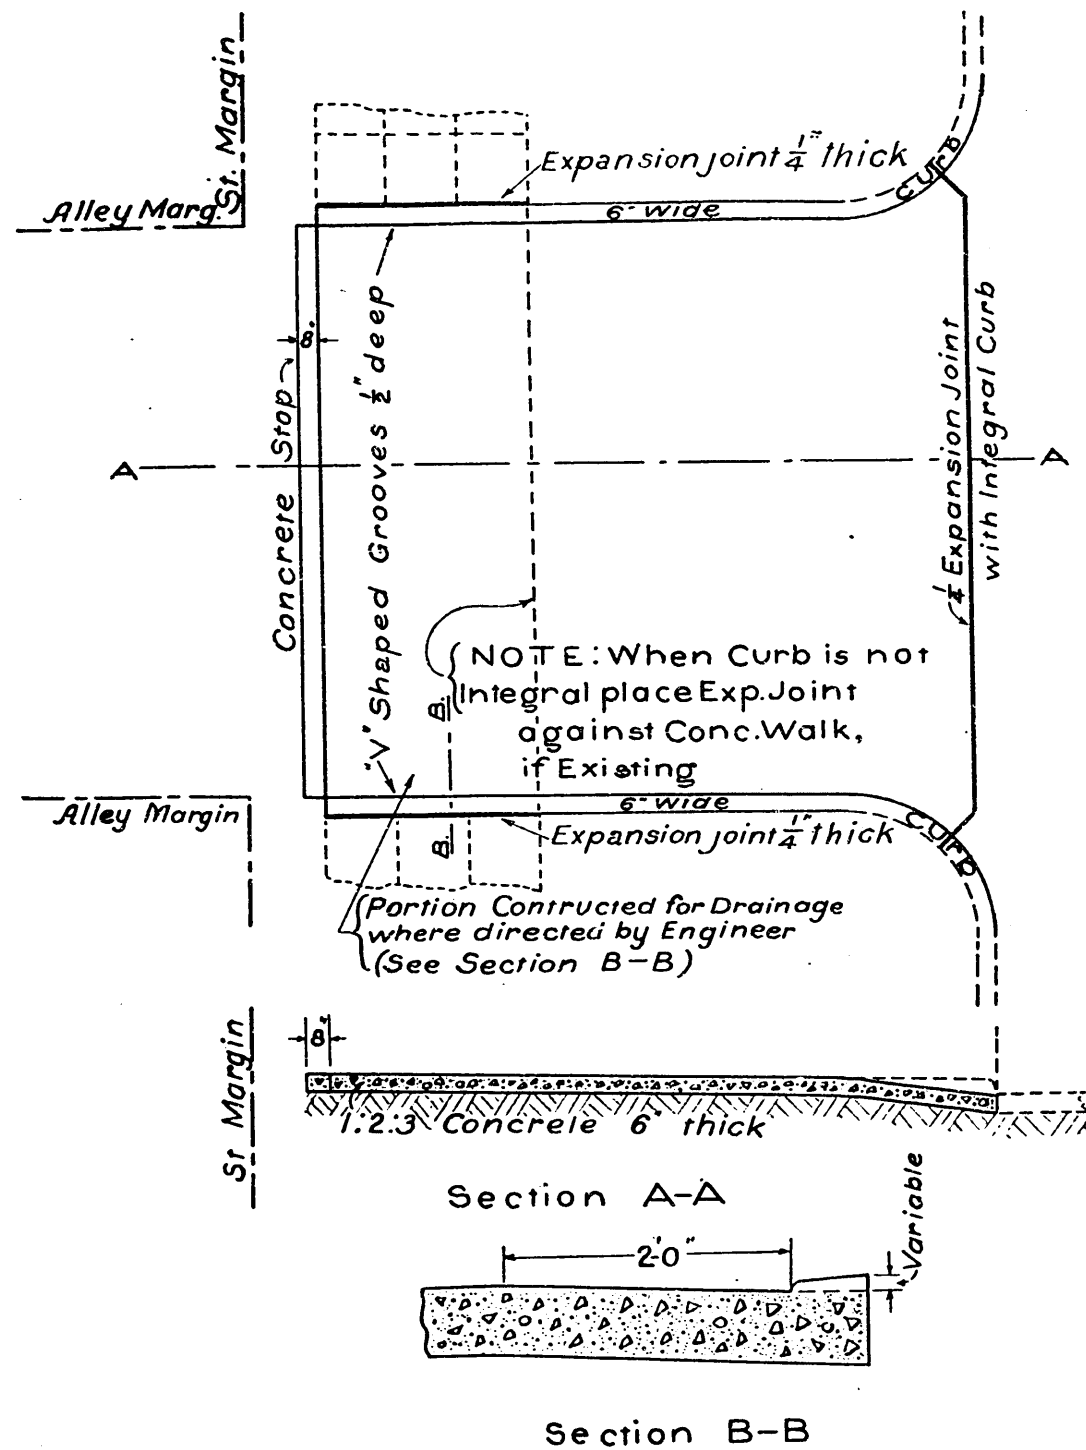 St. Margin
Alley Marg.
Expansion joint 1/4" thick
Curb
6" wide
8"
Concrete Stop
"V" Shaped Grooves 1/2" deep
1/4 Expansion Joint
with Integral Curb
A
A
NOTE: When Curb is not
Integral place Exp. Joint
against Conc. Walk,
if Existing
B.
B.
Alley Margin
6" wide
Curb
Expansion joint 1/4" thick
Portion Contructed for Drainage
where directed by Engineer
(See Section B-B)
St Margin
8"
1:2:3 Concrete 6" thick
Section A-A
2'-0"
Variable
Section B-B